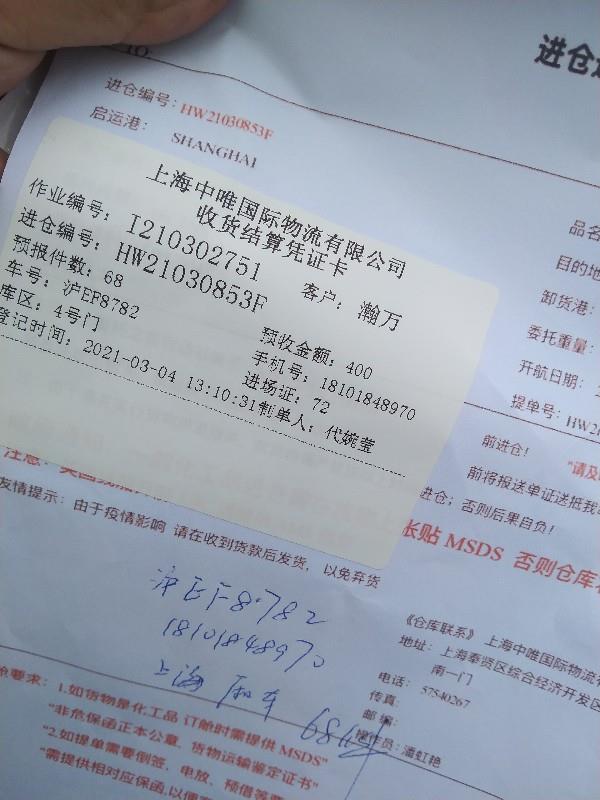 TO:
进仓
进仓编号: HW21030853F
启运港: SHANGHAI
品名
目的地
卸货港:
委托重量:
开航日期:
提单号: HW2
上海中唯国际物流有限公司
收货结算凭证卡
作业编号: I210302751
客户: 瀚万
进仓编号: HW21030853F
预报件数: 68
预收金额: 400
车号: 沪EF8782
手机号: 18101848970
库区: 4号门
进场证: 72
登记时间: 2021-03-04 13:10:31
制单人: 代婉莹
前进仓!
"请及
前将报送单证送抵我
进仓; 否则后果自负!
注意:
张贴 MSDS 否则仓库
友情提示: 由于疫情影响 请在收到货款后发货, 以免弃货
沪EF8782
18101848970
上海
68件
《仓库联系》上海中唯国际物流有
地址: 上海奉贤区综合经济开发区
南一门
电话: 57540267
传真:
邮编:
操作员: 潘虹艳
要求: 1.如货物是化工品 订舱时需提供 MSDS"
"非危保函正本公章, 货物运输鉴定证书"
"2.如提单需要倒签、电放、预借等
"需提供相对应保函,以便